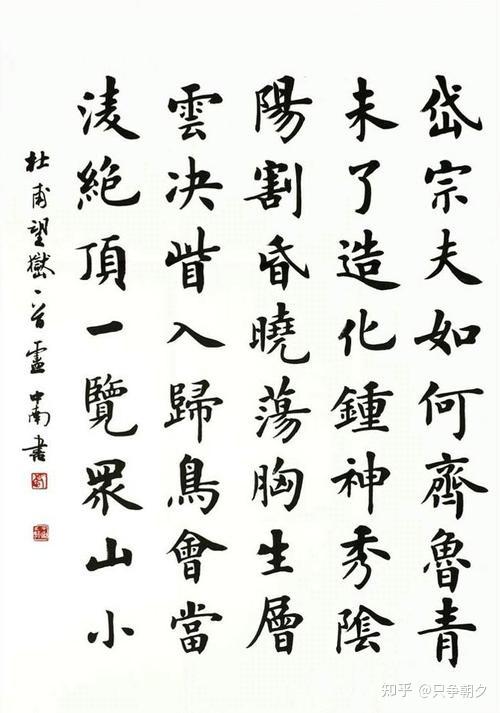 岱宗夫如何齊魯青
未了造化鍾神秀陰
陽割昏曉蕩胸生層
雲决眥入歸鳥會當
淩絶頂一覽眾山小
杜甫望嶽一首盧中南書
知乎 @只争朝夕